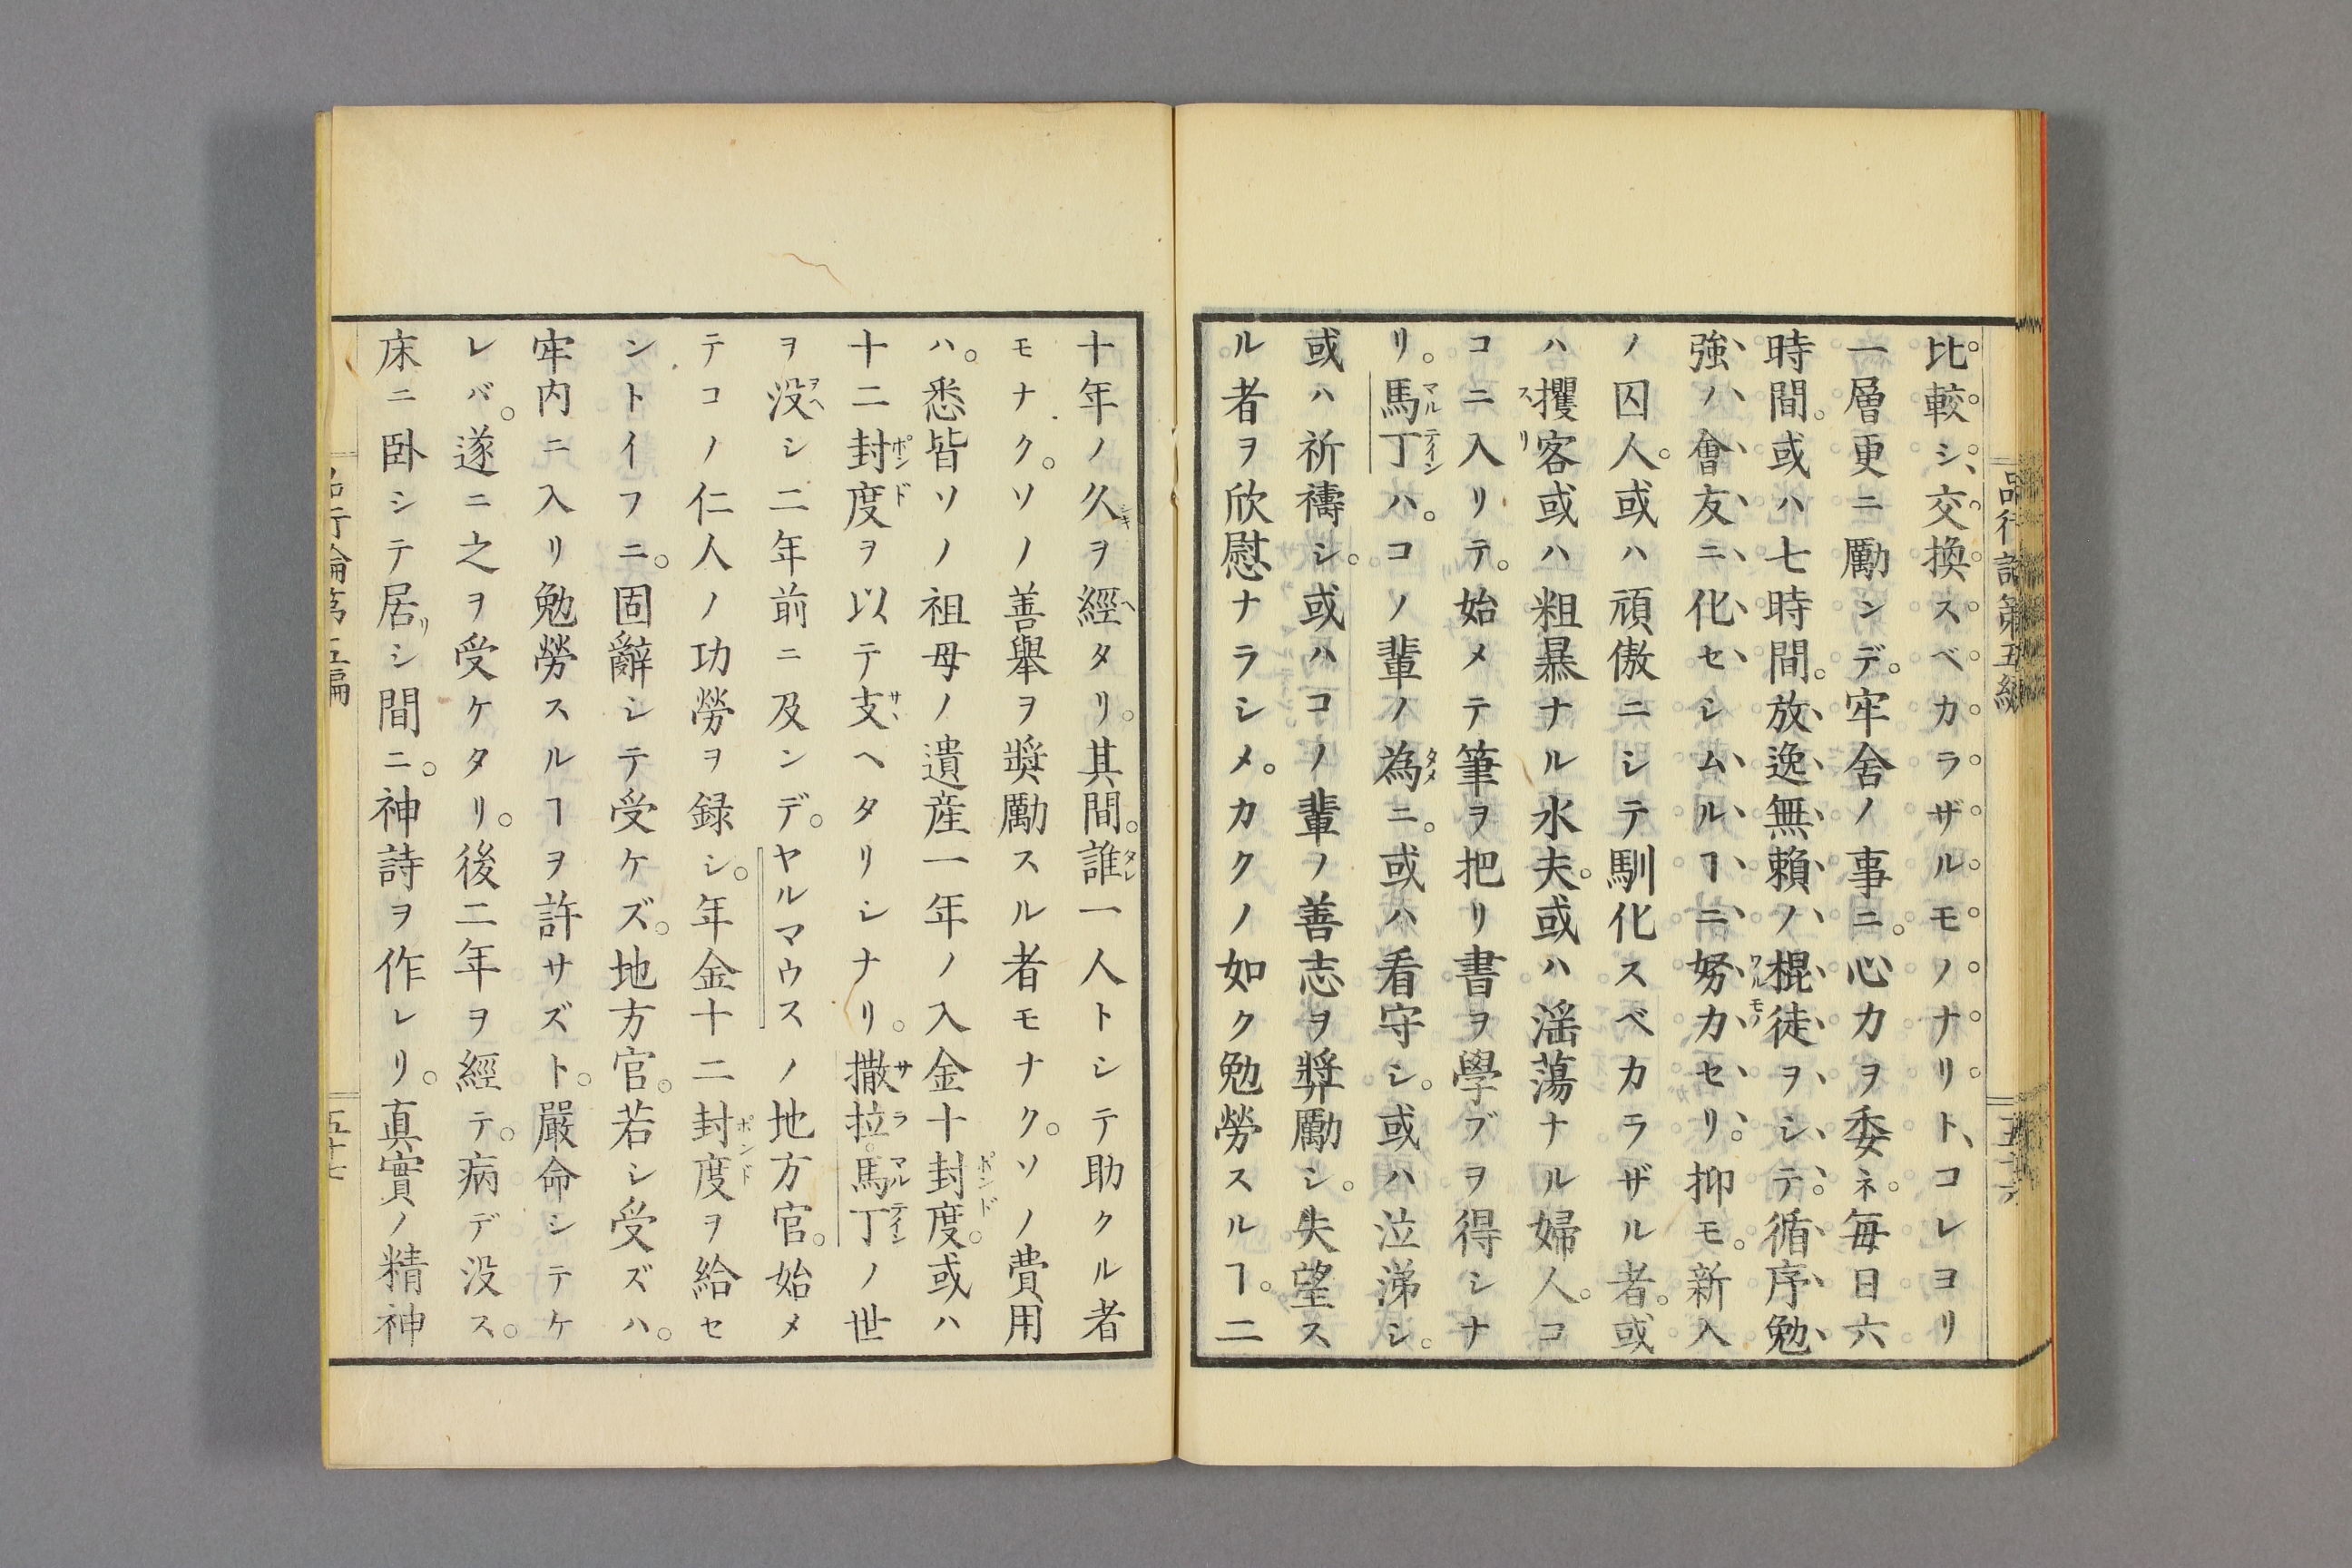 比較シ、交換スベカラザルモノナリト、コレヨリ
一層更ニ勵ンデ。牢舍ノ事ニ。心力ヲ委ネ。毎日六
時間。或ハ七時間。放逸無賴ノ棍徒ヲシテ。循序勉
強ノ會友ニ化セシムルヿニ努力セリ。抑モ。新入
ノ囚人。或ハ頑傲ニシテ馴化スベカラザル者。或
ハ攫客或ハ粗暴ナル水夫。或ハ淫蕩ナル婦人。コ
コニ入リテ。始メテ筆ヲ把リ書ヲ學ブヲ得シナ
リ。馬丁ハ。コノ輩ノ為ニ。或ハ看守シ。或ハ泣涕シ。
或ハ祈禱シ。或ハコノ輩ノ善志ヲ奬勵シ。失望ス
ル者ヲ欣慰ナラシメ。カクノ如ク勉勞スルヿ。二
十年ノ久ヲ經タリ。其間。誰一人トシテ助クル者
モナク。ソノ善舉ヲ奬勵スル者モナク。ソノ費用
ハ。悉皆ソノ祖母ノ遺産一年ノ入金十封度。或ハ
十二封度ヲ以テ支ヘタリシナリ。撒拉馬丁ノ世
ヲ没シ二年前ニ及ンデ。ヤルマウスノ地方官。始メ
テコノ仁人ノ功勞ヲ録シ。年金十二封度ヲ給セ
ントイフニ。固辭シテ受ケズ。地方官。若シ受ズハ。
牢内ニ入リ勉勞スルヿヲ許サズト。嚴命シテケ
レバ。遂ニ之ヲ受ケタリ。後二年ヲ經テ。病デ没ス。
床ニ卧シテ居シ間ニ。神詩ヲ作レリ。真實ノ精神
品行論第五編
五十七